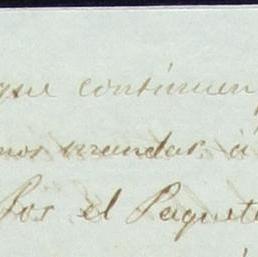 que continuen
mos mandar, á
Por el Paquete